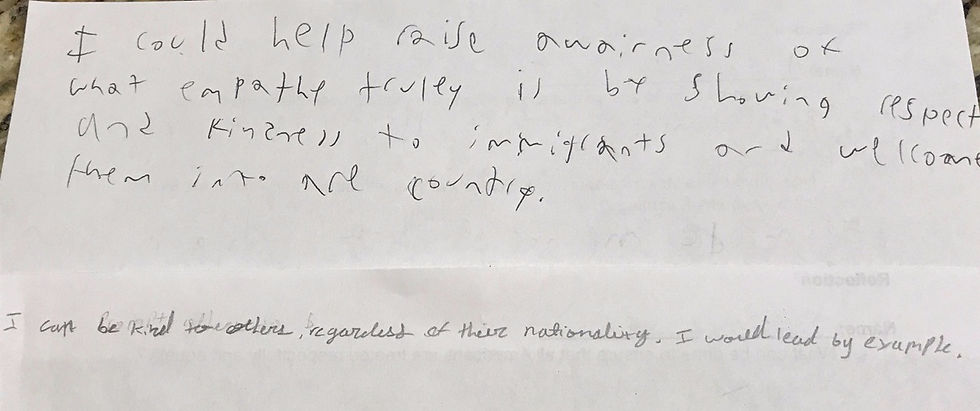 I could help raise awairness of
what empathy truley is by showing respect
and kindness to immigrants and welcome
them into are country.
Reflection
I can be kind to others, regardless of their nationality. I would lead by example.